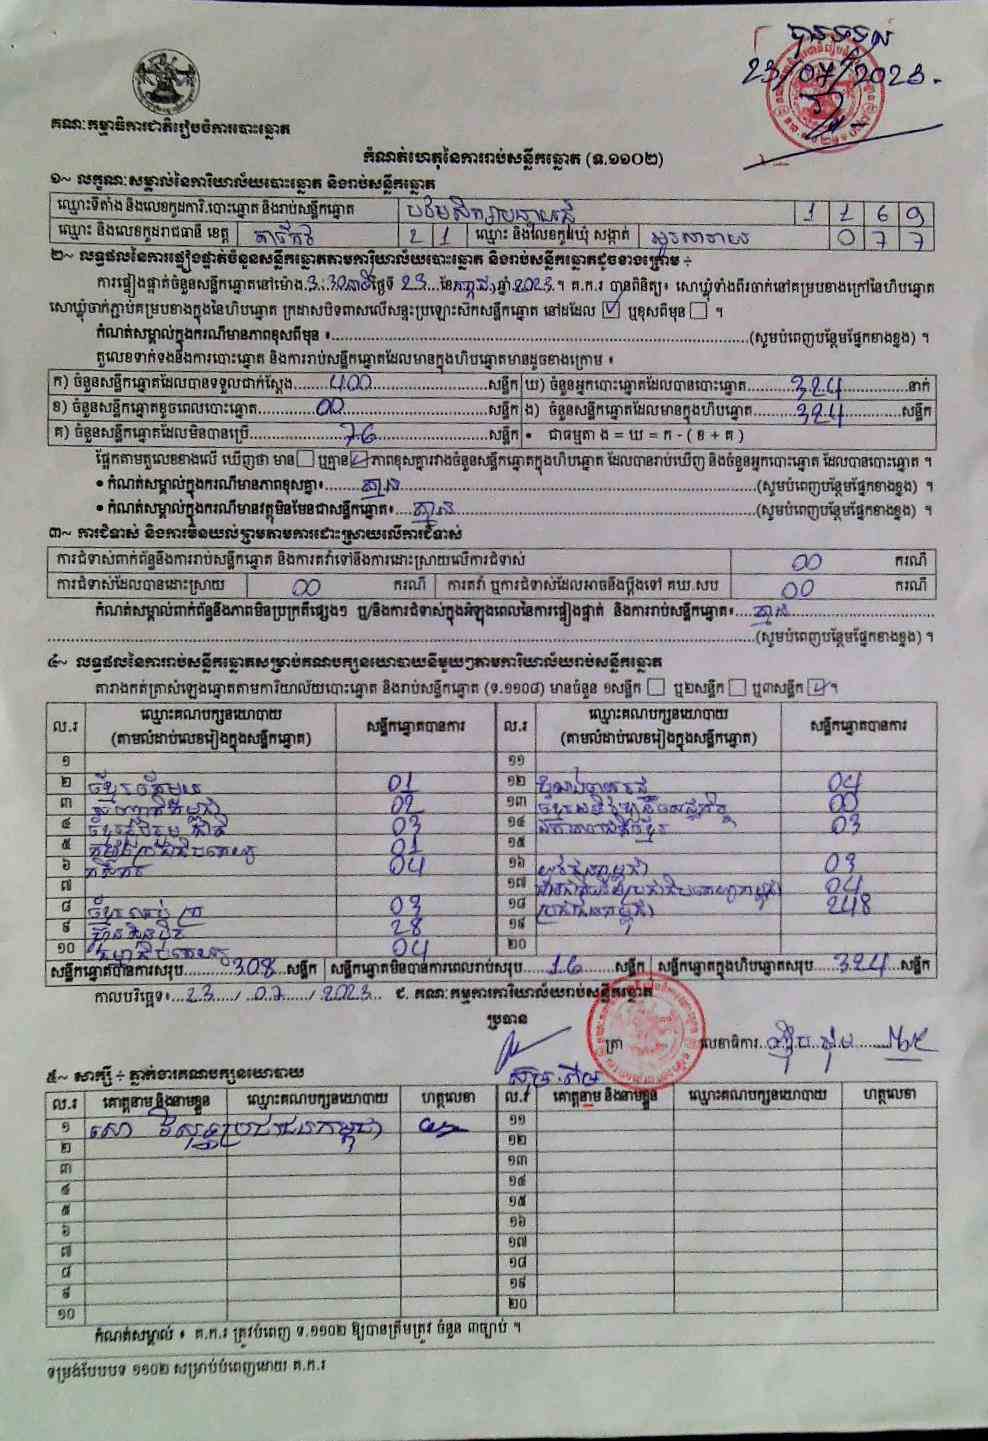 បានទទួល
23/07/2023.
គណៈកម្មាធិការជាតិរៀបចំការបោះឆ្នោត
កំណត់ហេតុនៃការរាប់សន្លឹកឆ្នោត (ទ.១១០២)
១~ លក្ខណៈសម្គាល់នៃការិយាល័យបោះឆ្នោត និងរាប់សន្លឹកឆ្នោត
ឈ្មោះទីតាំង និងលេខកូដការិ.បោះឆ្នោត និងរាប់សន្លឹកឆ្នោត 1 1 6 9
ឈ្មោះ និងលេខកូដរាជធានី ខេត្ត តាកែវ 2 1 ឈ្មោះ និងលេខកូដឃុំ សង្កាត់ អូរសារាយ 0 7 7
២~ លទ្ធផលនៃការផ្ទៀងផ្ទាត់ចំនួនសន្លឹកឆ្នោតតាមការិយាល័យបោះឆ្នោត និងរាប់សន្លឹកឆ្នោតដូចខាងក្រោម ÷
ការផ្ទៀងផ្ទាត់ចំនួនសន្លឹកឆ្នោតនៅម៉ោង.3:30នាទីថ្ងៃទី 23...ខែកក្កដា.ឆ្នាំ.2023.។ គ.ក.រ បានពិនិត្យ៖ សោឃ្មុំទាំងពីរចាក់នៅគម្របខាងក្រៅនៃហិបឆ្នោត
សោឃ្មុំចាក់ភ្ជាប់គម្របខាងក្នុងនៃហិបឆ្នោត ក្រដាសបិទពាសលើសន្ទះប្រឡោះសឹកសន្លឹកឆ្នោត នៅដដែល ☑ ឬខុសពីមុន ☐ ។
កំណត់សម្គាល់ក្នុងករណីមានភាពខុសពីមុន ៖..........(សូមបំពេញបន្ថែមផ្នែកខាងខ្នង) ។
តួលេខទាក់ទងនឹងការបោះឆ្នោត និងការរាប់សន្លឹកឆ្នោតដែលមានក្នុងហិបឆ្នោតមានដូចខាងក្រោម ៖
ក) ចំនួនសន្លឹកឆ្នោតដែលបានទទួលជាក់ស្តែង........400........សន្លឹក ឃ) ចំនួនអ្នកបោះឆ្នោតដែលបានបោះឆ្នោត........324........នាក់
ខ) ចំនួនសន្លឹកឆ្នោតខូចពេលបោះឆ្នោត........00........សន្លឹក ង) ចំនួនសន្លឹកឆ្នោតដែលមានក្នុងហិបឆ្នោត........324........សន្លឹក
គ) ចំនួនសន្លឹកឆ្នោតដែលមិនបានប្រើ........76........សន្លឹក • ជាធម្មតា ង = ឃ = ក - ( ខ + គ )
ផ្អែកតាមតួលេខខាងលើ ឃើញថា មាន ☐ ឬគ្មាន ☑ ភាពខុសគ្នារវាងចំនួនសន្លឹកឆ្នោតក្នុងហិបឆ្នោត ដែលបានរាប់ឃើញ និងចំនួនអ្នកបោះឆ្នោត ដែលបានបោះឆ្នោត ។
• កំណត់សម្គាល់ក្នុងករណីមានភាពខុសគ្នា៖........គ្មាន........(សូមបំពេញបន្ថែមផ្នែកខាងខ្នង) ។
• កំណត់សម្គាល់ក្នុងករណីមានវត្ថុមិនមែនជាសន្លឹកឆ្នោត៖....គ្មាន........(សូមបំពេញបន្ថែមផ្នែកខាងខ្នង) ។
៣~ ការជំទាស់ និងការមិនយល់ព្រមតាមការដោះស្រាយលើការជំទាស់
ការជំទាស់ពាក់ព័ន្ធនឹងការរាប់សន្លឹកឆ្នោត និងការតវ៉ាទៅនឹងការដោះស្រាយលើការជំទាស់ 00 ករណី
ការជំទាស់ដែលបានដោះស្រាយ 00 ករណី ការតវ៉ា ឬការជំទាស់ដែលអាចនឹងប្តឹងទៅ គឃ.សប 00 ករណី
កំណត់សម្គាល់ពាក់ព័ន្ធនឹងភាពមិនប្រក្រតីផ្សេងៗ ឬ/និងការជំទាស់ក្នុងអំឡុងពេលនៃការផ្ទៀងផ្ទាត់ និងការរាប់សន្លឹកឆ្នោត៖....គ្មាន........
........(សូមបំពេញបន្ថែមផ្នែកខាងខ្នង) ។
៤~ លទ្ធផលនៃការរាប់សន្លឹកឆ្នោតសម្រាប់គណបក្សនយោបាយនីមួយៗតាមការិយាល័យរាប់សន្លឹកឆ្នោត
តារាងកត់ត្រាសំឡេងឆ្នោតតាមការិយាល័យបោះឆ្នោត និងរាប់សន្លឹកឆ្នោត (ទ.១១០៨) មានចំនួន ១សន្លឹក ☐ ឬ២សន្លឹក ☐ ឬ៣សន្លឹក ☑។
ល.រ ឈ្មោះគណបក្សនយោបាយ (តាមលំដាប់លេខរៀងក្នុងសន្លឹកឆ្នោត) សន្លឹកឆ្នោតបានការ ល.រ ឈ្មោះគណបក្សនយោបាយ (តាមលំដាប់លេខរៀងក្នុងសន្លឹកឆ្នោត) សន្លឹកឆ្នោតបានការ
១ ១១
២ 01 ១២ 04
៣ 02 ១៣ 00
៤ 03 ១៤ 03
៥ 01 ១៥
៦ 04 ១៦ 03
៧ ១៧ 04
៨ 03 ១៨ ប្រជាជនកម្ពុជា 248
៩ 28 ១៩
១០ 04 ២០
សន្លឹកឆ្នោតបានការសរុប........308...សន្លឹក សន្លឹកឆ្នោតមិនបានការពេលរាប់សរុប....16......សន្លឹក សន្លឹកឆ្នោតក្នុងហិបឆ្នោតសរុប....324...សន្លឹក
កាលបរិច្ឆេទ៖...23..../..07..../ 2023.. ជ. គណៈកម្មការការិយាល័យរាប់សន្លឹកឆ្នោត
ប្រធាន
ត្រា លេខាធិការ..
៥~ សាក្សី ÷ ភ្នាក់ងារគណបក្សនយោបាយ
ល.រ គោត្តនាម និងនាមខ្លួន ឈ្មោះគណបក្សនយោបាយ ហត្ថលេខា ល.រ គោត្តនាម និងនាមខ្លួន ឈ្មោះគណបក្សនយោបាយ ហត្ថលេខា
១ សោ វិសុទ្ធ ប្រជាជនកម្ពុជា ១១
២ ១២
៣ ១៣
៤ ១៤
៥ ១៥
៦ ១៦
៧ ១៧
៨ ១៨
៩ ១៩
១០ ២០
កំណត់សម្គាល់ ៖ គ.ក.រ ត្រូវបំពេញ ទ.១១០២ ឱ្យបានត្រឹមត្រូវ ចំនួន ៣ច្បាប់ ។
ទម្រង់បែបបទ ១១០២ សម្រាប់បំពេញដោយ គ.ក.រ